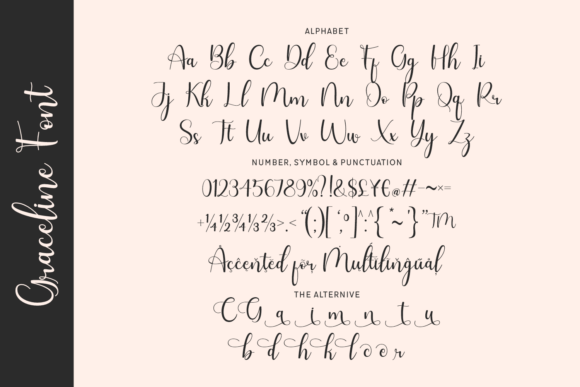 Graceline Font
ALPHABET
Aa Bb Cc Dd Ee Ff Gg Hh Ii
Jj Kk Ll Mm Nn Oo Pp Qq Rr
Ss Tt Uu Vv Ww Xx Yy Zz
NUMBER, SYMBOL & PUNCTUATION
0123456789%?!&$£¥€@#-~×=
+¼½¾⅓⅔>.<“(;)[‘,°]^:^{*~'}”TM
Accented for Multilingual
THE ALTERNIVE
C G a i m n t u
b d h k l o e r